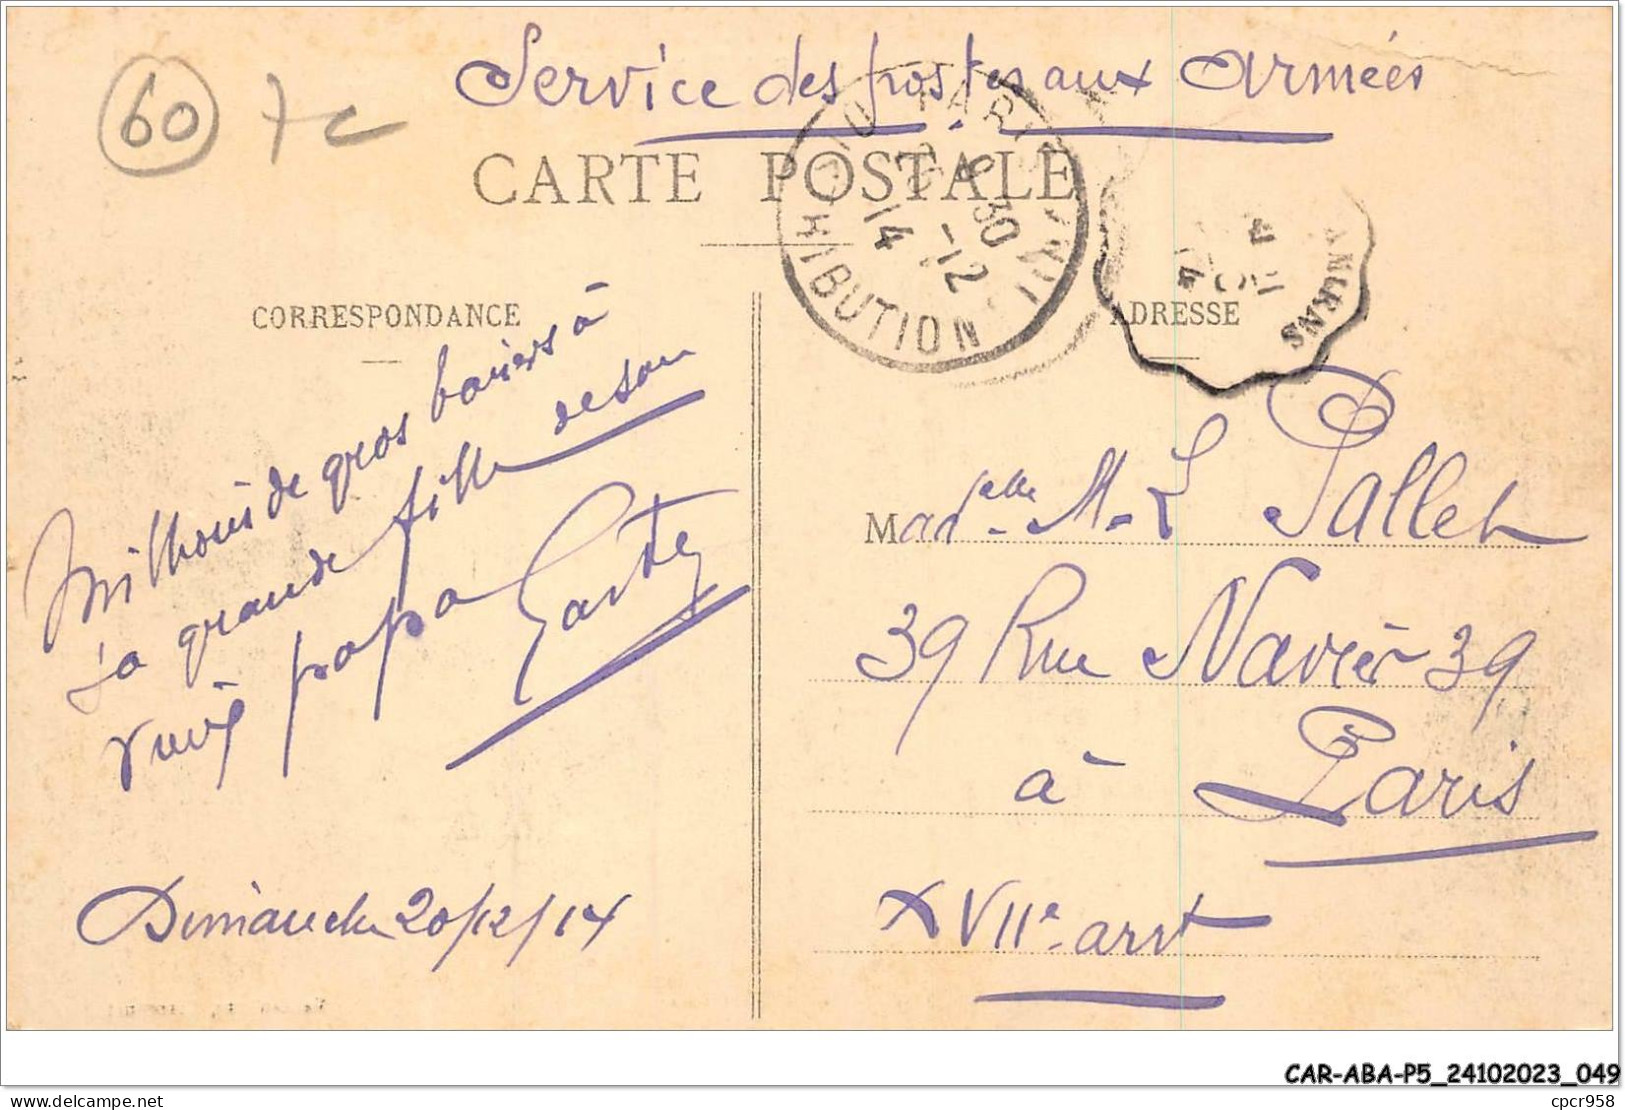 60 7c
Service des postes aux Armées
CARTE POSTALE
PARIS
8 30
-12
14
DISTRIBUTION
14
CORRESPONDANCE
ADRESSE
Millions de gros baisers à
sa grande fille de son
vieux papa
Dimanche 20/12/14
Madselle M-L Pallet
39 Rue Navier 39
à Paris
XVIIe arrt
CAR-ABA-P5_24102023_049
cpcr958